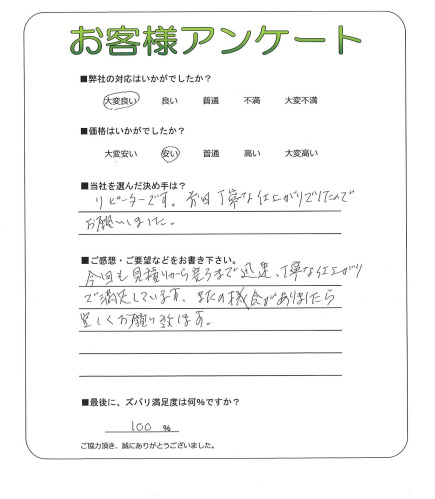 お客様アンケート
■弊社の対応はいかがでしたか?
大変良い 良い 普通 不満 大変不満
■価格はいかがでしたか?
大変安い 安い 普通 高い 大変高い
■当社を選んだ決め手は?
リピーターです。前回丁寧な仕上がりでしたので
お願いしました。
■ご感想・ご要望などをお書き下さい。
今回も見積りから完了まで迅速、丁寧な仕上がり
で満足しています。またの機会がありましたら
宜しくお願い致します。
■最後に、ズバリ満足度は何%ですか?
100 %
ご協力頂き、誠にありがとうございました。